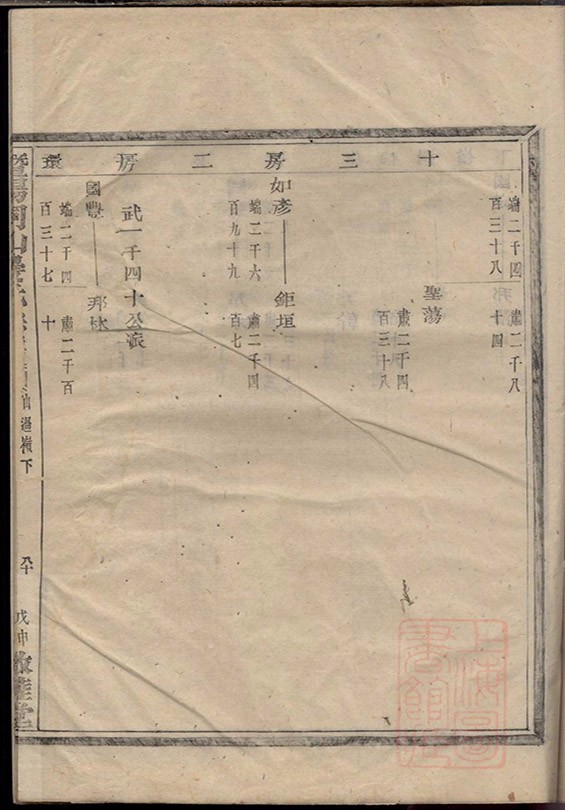 十三房二房環
端二千四百三十八
肅二千八十四
聖蕩
肅二千四百三十八
如彥
端二千六百九十九
鉅垣
肅二千四百七
武一千四十公派
國豐
端二千四百三十七
邦林
肅二千百十
暨陽
過嶺下
戊申
敦睦堂
上海圖書館藏